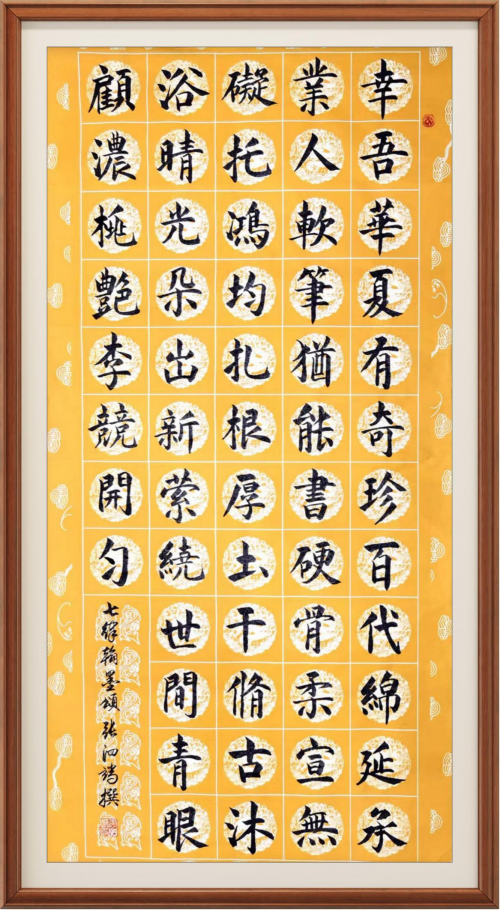 幸吾華夏有奇珍百代綿延承
業人軟筆猶能書硬骨柔宣無
礙托鴻均扎根厚土干脩古沐
浴晴光朵出新萦繞世間青眼
顧濃桃艷李競開勻
七律翰墨頌張泗撰